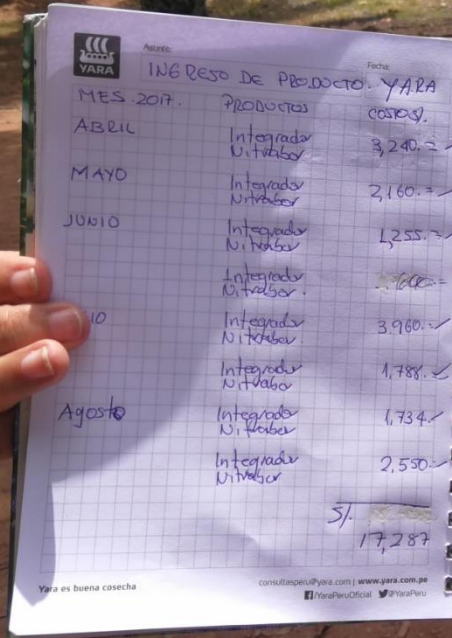 YARA
Asunto:
Fecha:
INGRESO DE PRODUCTO. YARA
MES. 2017. PRODUCTOS COSTO S/.
ABRIL Integrador 3,240.=
Nitrabor
MAYO Integrador 2,160.=
Nitrabor
JUNIO Integrador 1,255.=
Nitrabor
Integrador 600.=
Nitrabor.
IO Integrador 3.960.=
Nitrabor
Integrador 1,788.=
Nitrabor
Agosto Integrador 1,734
Nitrabor
Integrador 2,550.=
Nitrabor
S/.
17,287
Yara es buena cosecha
consultasperu@yara.com | www.yara.com.pe
/YaraPeruOficial @YaraPeru